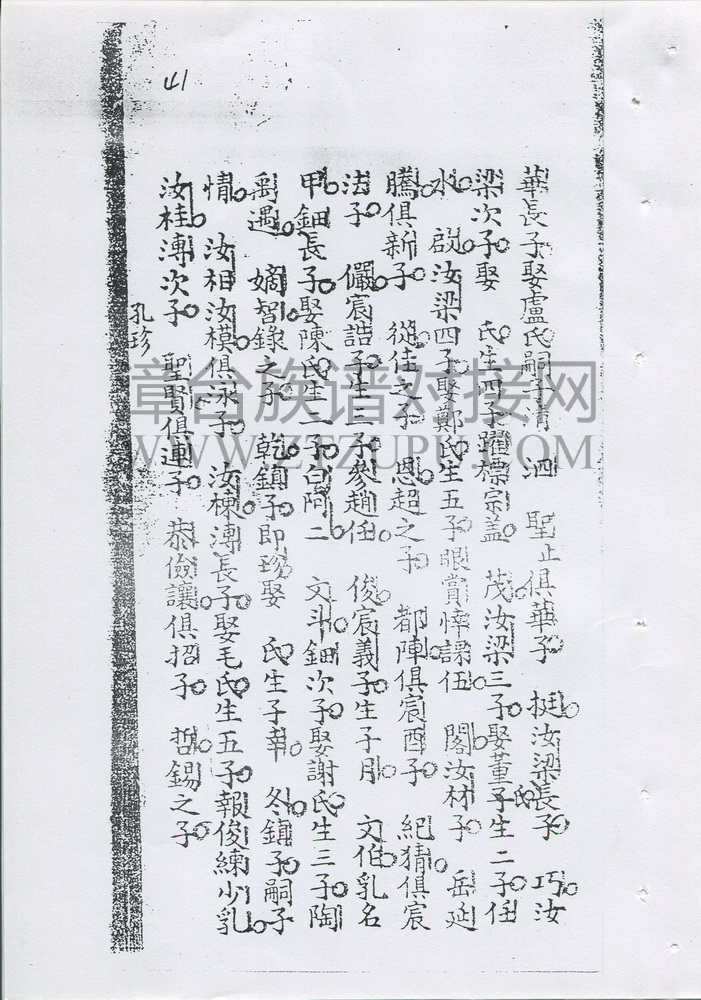 41
華長子娶盧氏嗣子清 泗 聖止俱華子 挺汝梁長子 巧汝
梁次子娶 氏生四子躍標宗盖 茂汝梁三子娶董氏子生二子任
水 啟汝梁四子娶鄭氏生五子眼賞悻諜伍 閣汝材子 岳延
騰俱新子 從佳之子 恩超之子 都陣俱宸酉子 紀猜俱宸
法子 儼宸誥子生三子參趙任 俊宸義子生子月 文伯乳名
甲鈿長子娶陳氏生一子白阿二 文斗鈿次子娶謝氏生三子陶
禹遇 嫡智錄之子 乾鎮子即珍娶 氏生子幸 冬鎮子嗣子
情 汝相汝模俱泳子 汝棟溥長子娶毛氏生五子報俊練少乳
汝桂溥次子 聖賢俱連子 恭儉讓俱招子 哲錫之子
孔珍
章台族谱对接网
WWW.ZTZUPU.COM